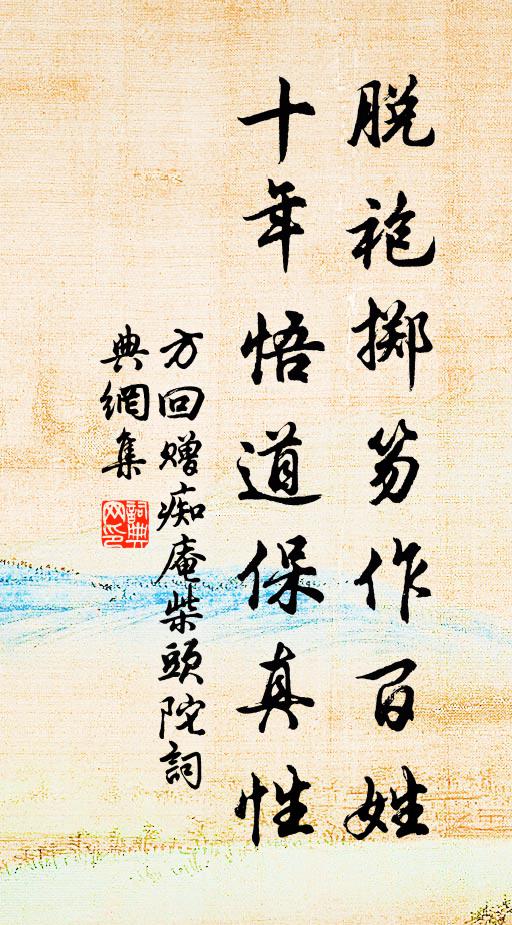 脱袍掷笏作百姓
十年悟道保真性
方回赠痴庵柴頭陀詞
典網集
詞典网印